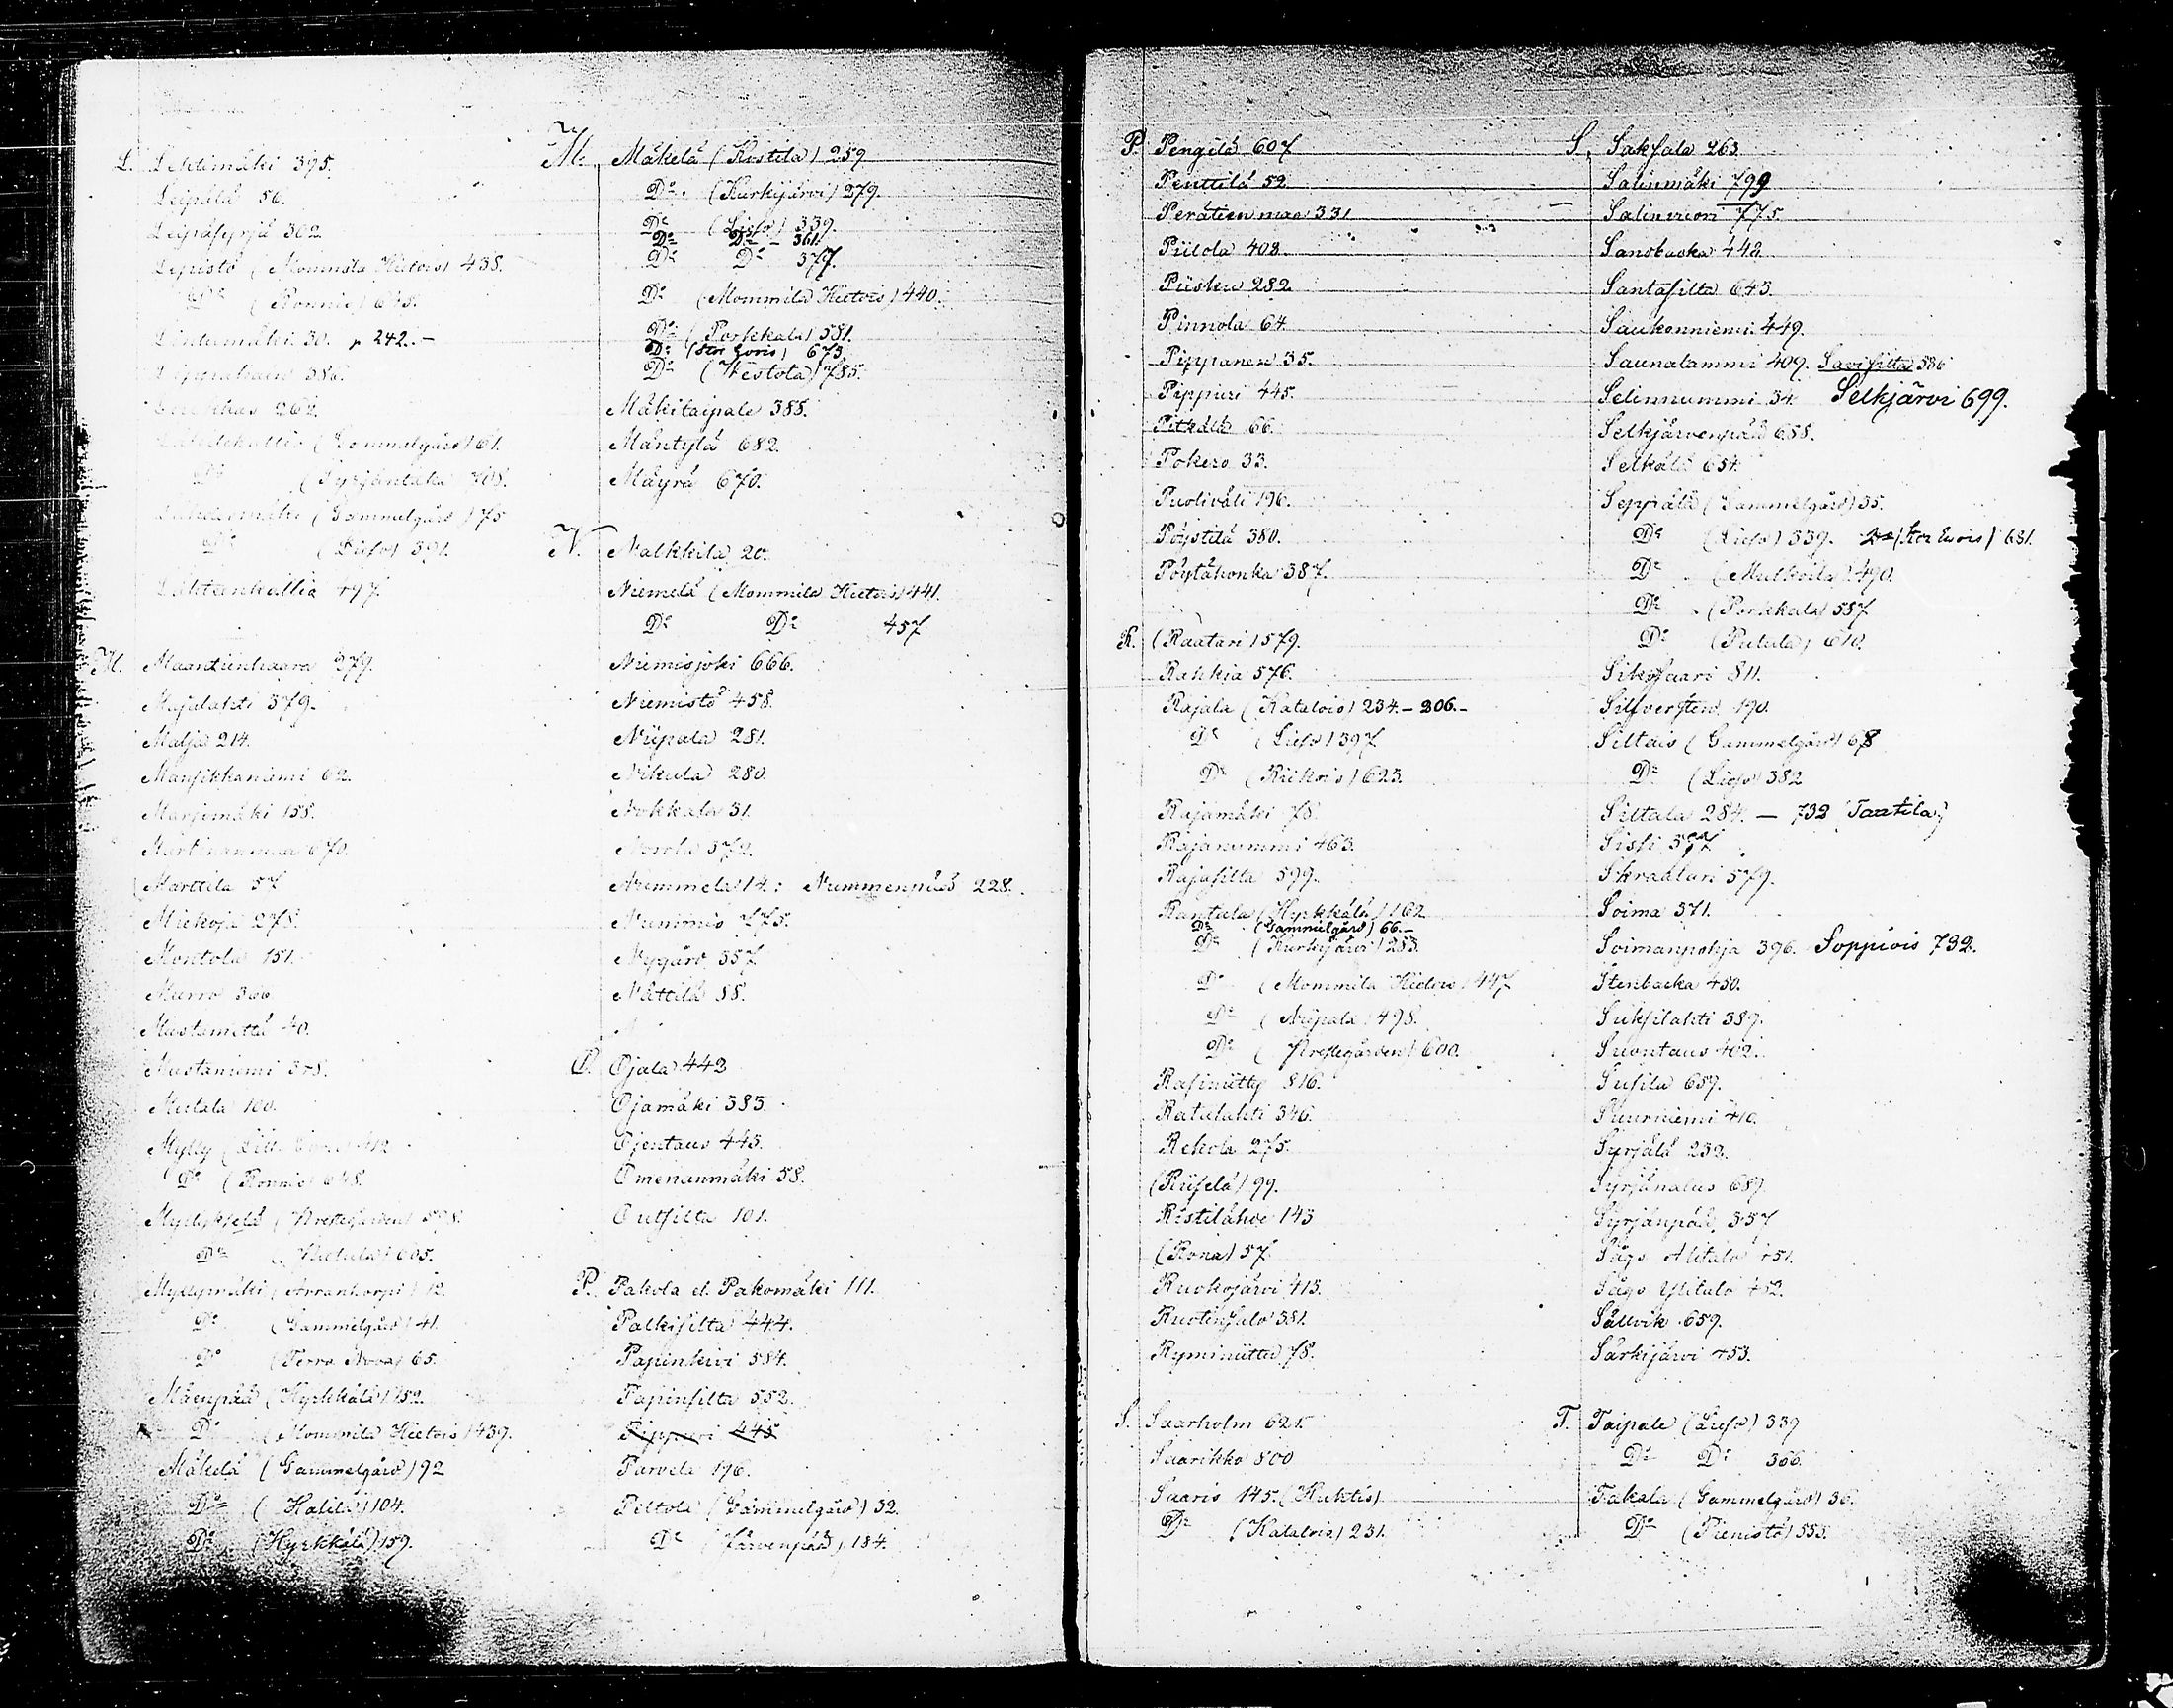 L. Lehtimäki 395.
Leipälä 56.
Leipäsyrjä 302.
Lepistö (Mommila Hietois) 438.
Do (Ronnie) 645.
Lintumäki 30. 242. -
386.
262.
(Gammelgård) 61.
Do
(Gammelgård) 75
Do (Lieso) 391.
Lähteenkallio 497.
M. Maantienhaara 279.
Majalahti 379.
Malja 214.
Mansikkaniemi 62.
Marjamäki 158.
Marttila 57
Mickoja 278.
Montola 151.
Murro 366
Mustamettä 40.
Mustaniemi
Mutala 100.
Mylly
Do (Ronnie) 648.
Myllykselä (Prestegården) 598.
Do 605.
Myllymäki (Arrankorpi) 12.
Do (Gammelgård) 41.
Do (Terra Nova) 65.
Mäenpää (Hyrkkälä) 152.
Do (Mommila Hietois) 439.
Mäkelä (Gammelgård) 92
Do (Halila) 104.
Do (Hyrkkälä) 159.
M. Mäkelä (Kostila) 259
Do. (Kurkijärvi) 279.
Do (Lieso) 339.
Do Do - 361.
Do Do 377.
Do (Mommila Hietois) 440.
Do (Porkkala) 581.
Do (Stor Evois) 673.
Do (Westola) 785.
Mäkitaipale 388.
Mäntylä 682.
Mäyrä 670.
N. Nalkkila 20.
Niemelä (Mommila Hietois) 441.
Do Do 457
Niemisjoki 666.
Niemistö 458.
Niipala 281.
Nikula 280.
Nokkala 31.
Norola 372.
Nummela 14. : Nummenpää 228.
Nummis 775.
Nygård 357
Nättilä 88.
O. Ojala 442
Ojamäki 383.
Ojentaus 443.
Omenanmäki 58.
Outsilta 101.
P. Pakola el. Pakomäki 111.
Palkisilta 444.
Papinkivi 584.
Papinsilta 552.
Pippuri 445
Parvela 196.
Peltola (Gammelgård) 32.
Do (Järvenpää) 184.
P. Pengilä 607
Penttilä 52
Perätienmaa 331
Piilola 408.
Piisku 282
Pinnola 64
Pippanen 35.
Pippuri 445.
Pitkälä 66.
Pokero 33.
Puoliväli 196.
Pöystilä 380.
Pöytähonka 387.
R. (Raatari) 579.
Rahkia 576.
Rajala (Kataloís) 234. - 206. -
Do (Lieso) 397
Do (Riikois) 623.
Rajamäki 78.
Rajanummi 463.
Rajasilta 599.
Rantala (Hyrkkälä) 162
Do (Gammelgård) 66. -
Do (Kurkijärvi) 283.
Do (Mommila Hietois) 447
Do (Niipala) 498.
Do (Prestegården) 600.
Rasiniitty 816.
Ratulahti 346.
Rekola 275.
(Riiselä) 99.
Ristilähde 143
(Rona) 57.
Ruokojärvi 413.
Ruotinsalo 381.
Ryminiittu 78.
S. Saarholm 621.
Saarikko 800
Saaris 145. (Kuhtis)
Do (Katalois) 231.
S. Saksala 263.
Salinmäki 799
Salinvuori 775.
Sandbacka 448.
Santasilta 643.
Saukonniemi 449.
Saunalammi 409. Savisilta 586
Selinnummi 34. Selkjärvi 699.
Selkjärvenpää 658.
Selkälä 654.
Seppälä (Gammelgård) 35.
Do (Lieso) 339. Do (Stor Evois) 681.
Do (Mulkoila) 490.
Do (Porkkala) 587
Do (Putula) 610.
Sikosaari 811.
Silfversten 190.
Siltais (Gammelgård) 68
Do (Lieso) 382
Siltala 284. - 732 (Taatila)
Skraatari 579.
Soima 371.
Soimanpohja 396. Soppiois 732.
Stenbacka 450.
Suksilahti 389.
Suontaus 402.
Susila 657.
Suurniemi 410.
Syrjälä 232.
Syrjänalus 689.
Syrjänpää 357
Sågs Alitalo 451.
Sågs Ylitalo 452.
Sällvik 659.
Särkijärvi 453.
T. Taipale (Lieso) 339
Do Do 366.
Takala (Gammelgård) 36.
Do (Pienistö) 555.